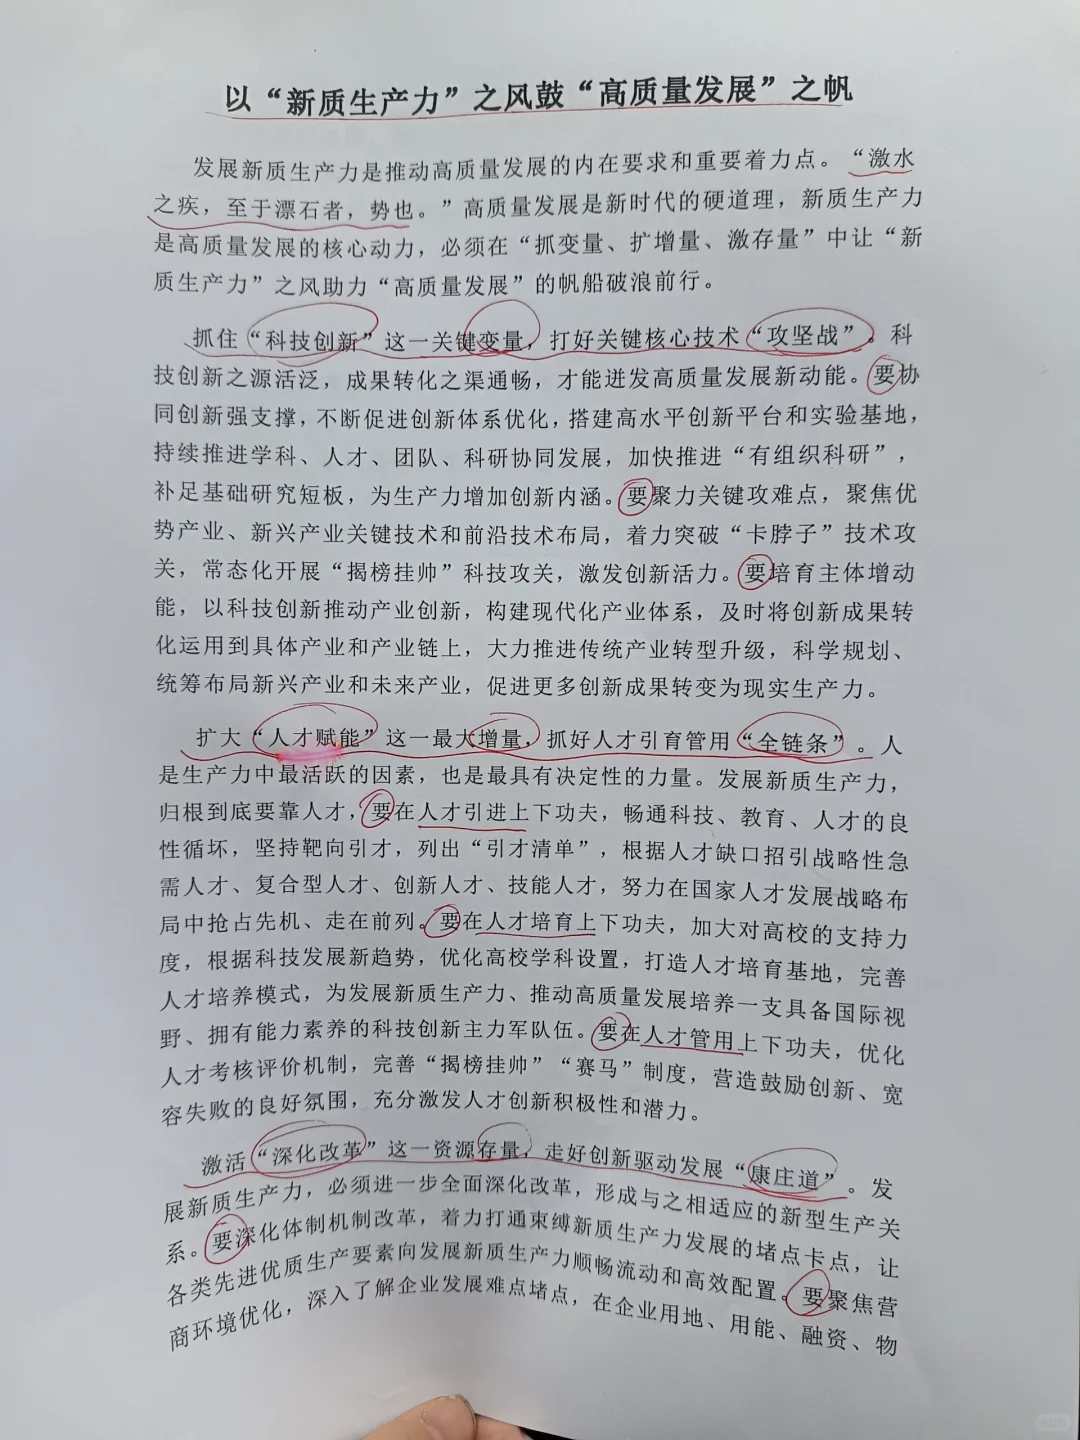 以“新质生产力”之风鼓“高质量发展”之帆
发展新质生产力是推动高质量发展的内在要求和重要着力点。“激水
之疾，至于漂石者，势也。”高质量发展是新时代的硬道理，新质生产力
是高质量发展的核心动力，必须在“抓变量、扩增量、激存量”中让“新
质生产力”之风助力“高质量发展”的帆船破浪前行。
抓住“科技创新”这一关键变量，打好关键核心技术“攻坚战”。科
技创新之源活泛，成果转化之渠通畅，才能迸发高质量发展新动能。要协
同创新强支撑，不断促进创新体系优化，搭建高水平创新平台和实验基地，
持续推进学科、人才、团队、科研协同发展，加快推进“有组织科研”，
补足基础研究短板，为生产力增加创新内涵。要聚力关键攻难点，聚焦优
势产业、新兴产业关键技术和前沿技术布局，着力突破“卡脖子”技术攻
关，常态化开展“揭榜挂帅”科技攻关，激发创新活力。要培育主体增动
能，以科技创新推动产业创新，构建现代化产业体系，及时将创新成果转
化运用到具体产业和产业链上，大力推进传统产业转型升级，科学规划、
统筹布局新兴产业和未来产业，促进更多创新成果转变为现实生产力。
扩大“人才赋能”这一最大增量，抓好人才引育管用“全链条”。人
是生产力中最活跃的因素，也是最具有决定性的力量。发展新质生产力，
归根到底要靠人才，要在人才引进上下功夫，畅通科技、教育、人才的良
性循环，坚持靶向引才，列出“引才清单”，根据人才缺口招引战略性急
需人才、复合型人才、创新人才、技能人才，努力在国家人才发展战略布
局中抢占先机、走在前列。要在人才培育上下功夫，加大对高校的支持力
度，根据科技发展新趋势，优化高校学科设置，打造人才培育基地，完善
人才培养模式，为发展新质生产力、推动高质量发展培养一支具备国际视
野、拥有能力素养的科技创新主力军队伍。要在人才管用上下功夫，优化
人才考核评价机制，完善“揭榜挂帅”“赛马”制度，营造鼓励创新、宽
容失败的良好氛围，充分激发人才创新积极性和潜力。
激活“深化改革”这一资源存量，走好创新驱动发展“康庄道”。发
展新质生产力，必须进一步全面深化改革，形成与之相适应的新型生产关
系。要深化体制机制改革，着力打通束缚新质生产力发展的堵点卡点，让
各类先进优质生产要素向发展新质生产力顺畅流动和高效配置。要聚焦营
商环境优化，深入了解企业发展难点堵点，在企业用地、用能、融资、物